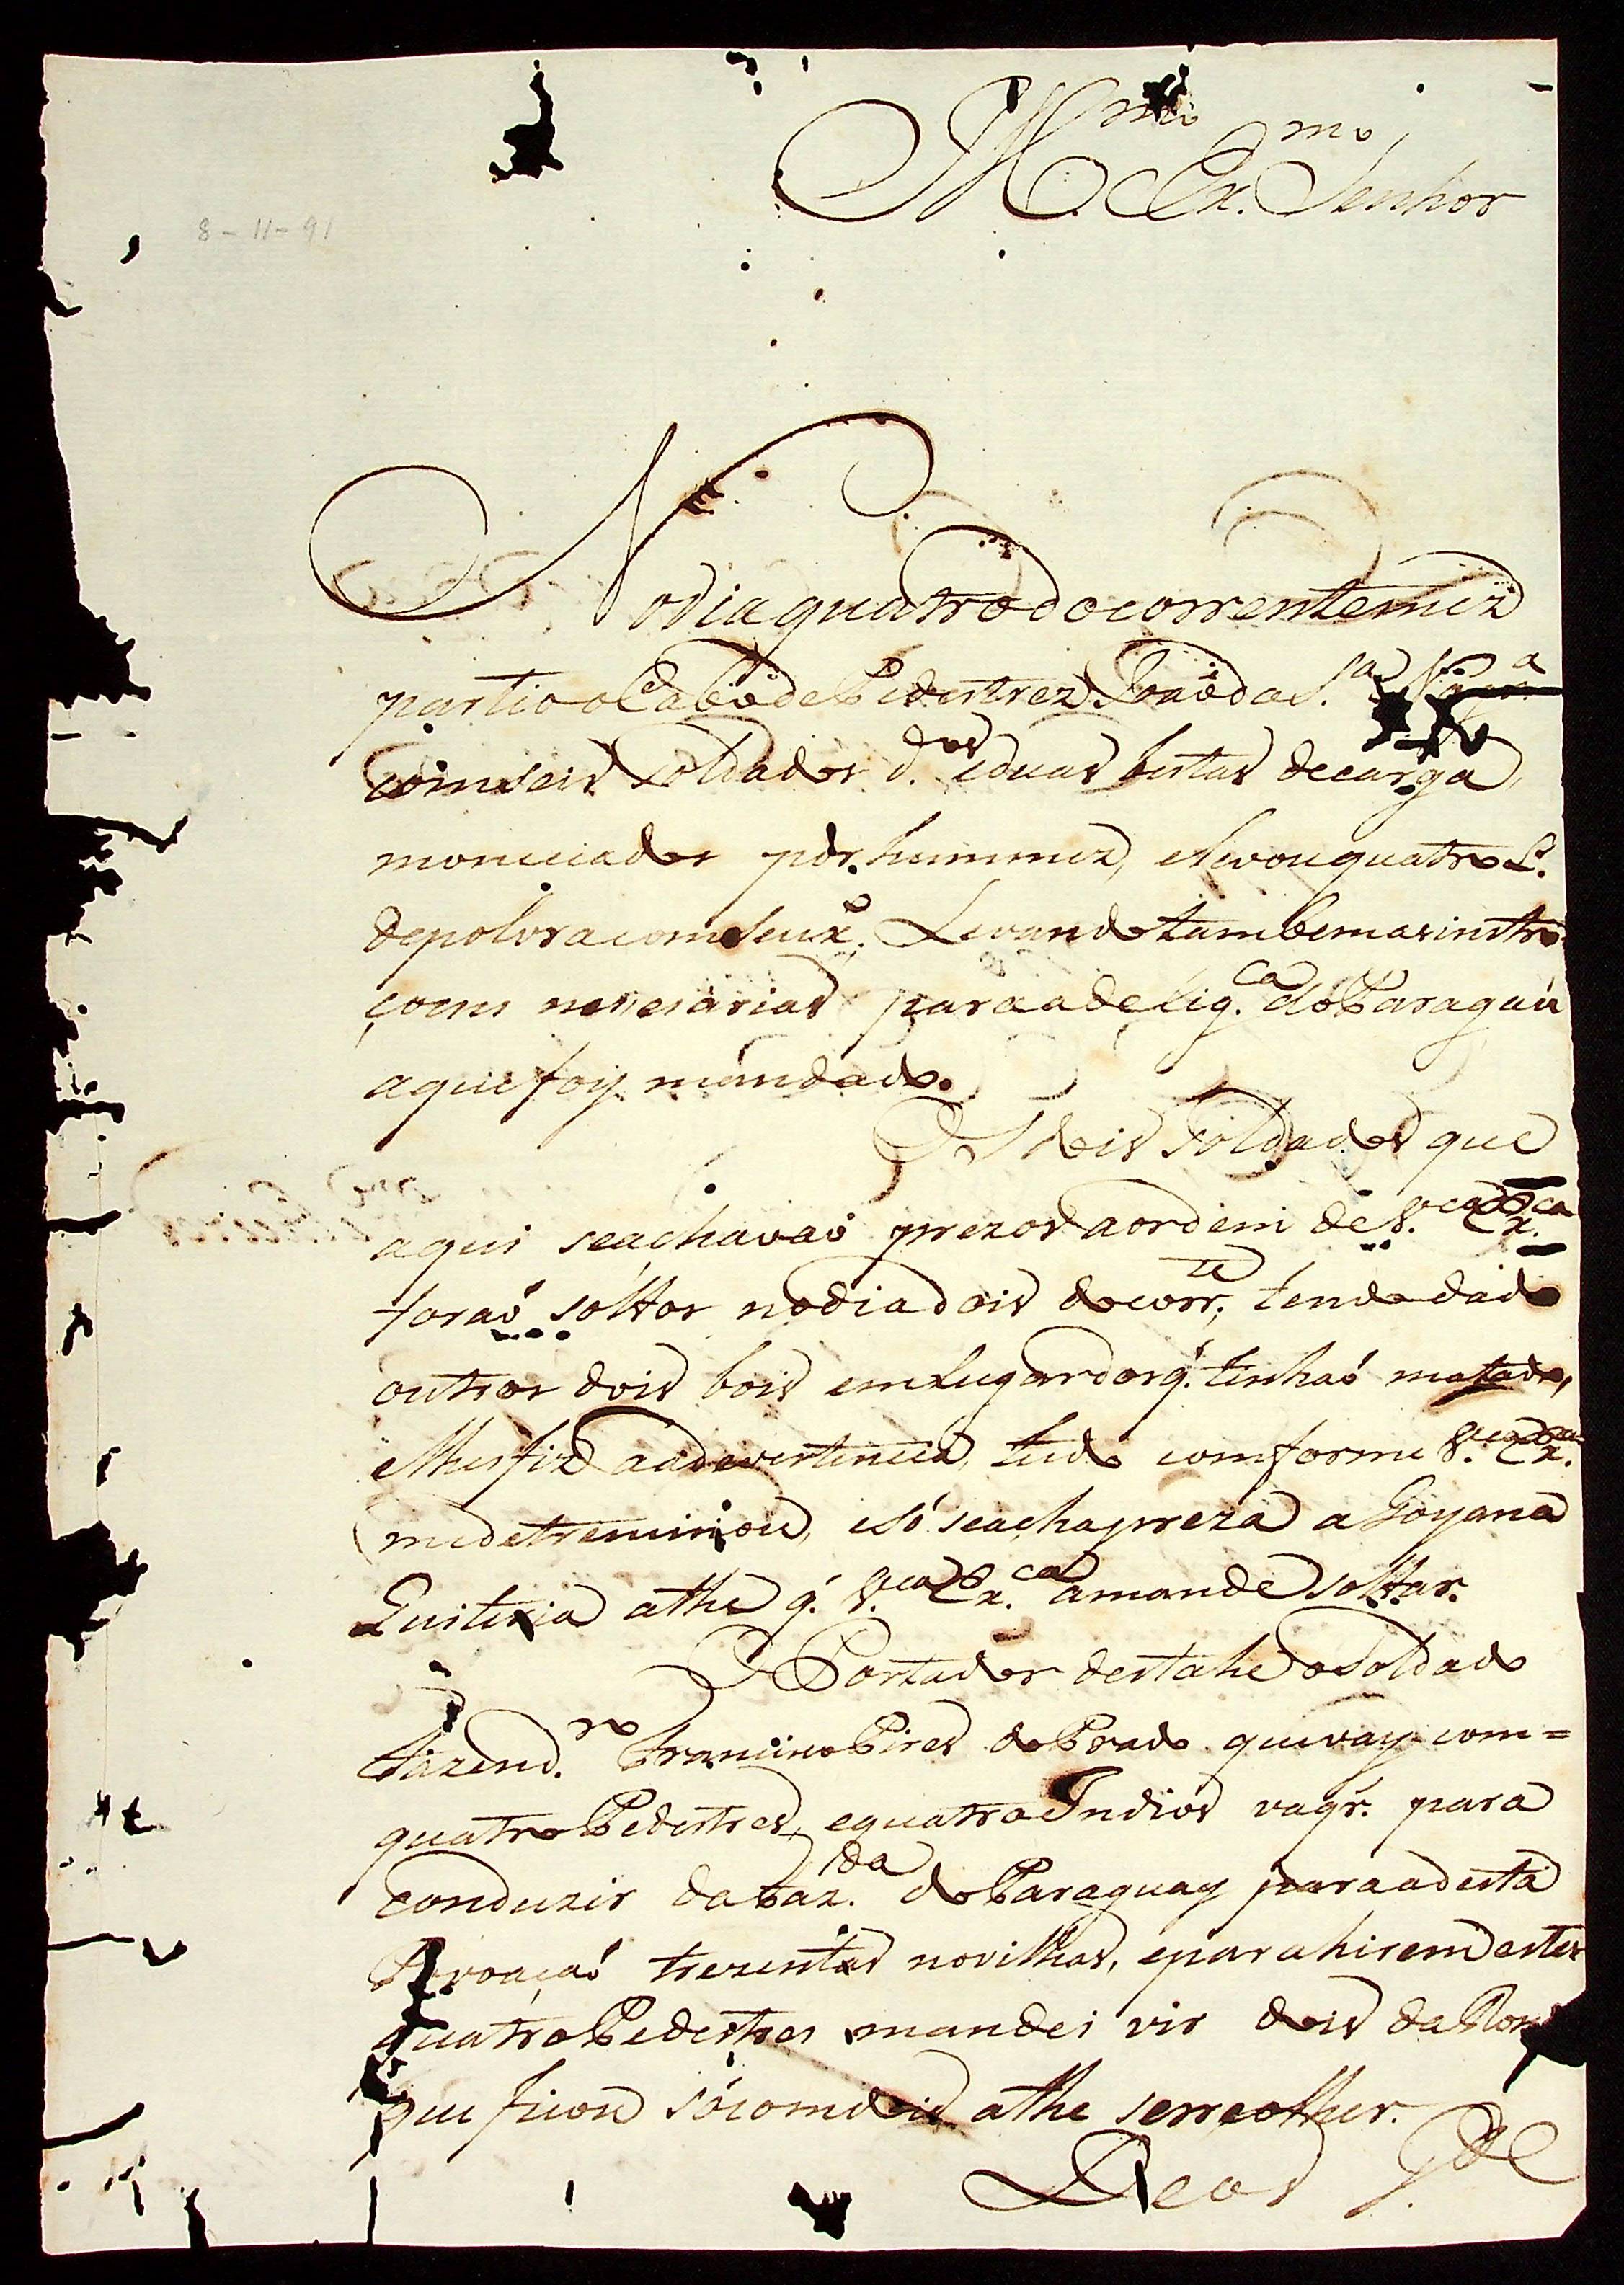 Ill.mo Ex.mo Senhor
8-11-91
No dia quatro do corrente mez
partio o Cabo de Pedestrez Joaõ da S.a
com seis soldados d.os e duas bestas de carga,
moniciados por hum mez, e levou quatro L.
de polvora com seu x.o Levando tambem as instro
çoens necesarias para a delig.ca do Paragau
a que foy mandado.
Os dois soldados que
aqui se achavaõ prezos a ordem de V.ca Ex.ca
foraõ soltos no dia dois do corr.te, tendo dado
outros dois bois em lugar dos q.' tinhaõ matado,
e lhes fiz a adevertencia, tudo comforme V.ca Ex.ca
me detreminou, e só se acha preza a Goyana
Quiteria athe q.' V.ca Ex.ca a mande soltar.
O Portador desta he o Soldado
Fazend.ro Francisco Pires do Prado que vay com=
quatro Pedestres, e quatro Indios vaqr.' para
conduzir da Faz.da do Paraguay para a desta
Povoaçaõ trezentas novilhas, e para hirem estes
quatro Pedestres mandei vir dois da Ron
que ficou só com dois athe se recolher.
Deos g.de